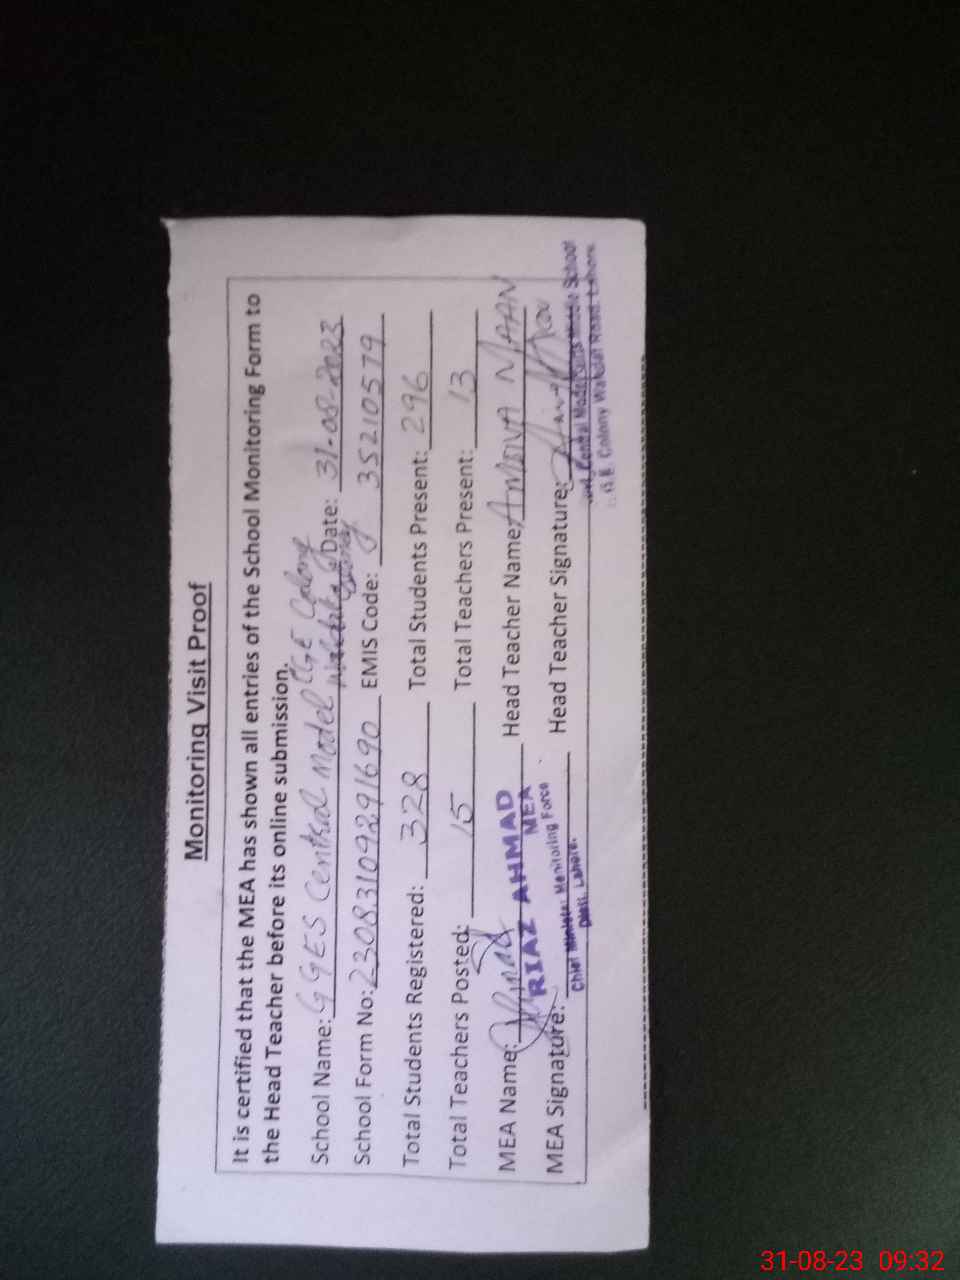 Monitoring Visit Proof
It is certified that the MEA has shown all entries of the School Monitoring Form to
the Head Teacher before its online submission.
School Name: GGES Central Model EGE Colony Date: 31-08-2023
School Form No: 23083109291690 EMIS Code: 35210579
Total Students Registered: 328 Total Students Present: 296
Total Teachers Posted: 15 Total Teachers Present: 13
MEA Name: Head Teacher Name: MAAN
RIAZ AHMAD
MEA
MEA Signature: Head Teacher Signature:
Chief Minister Monitoring Force
Distt. Lahore.
Central Model Girls Middle School
Colony Wahdat Road Lahore
31-08-23 09:32